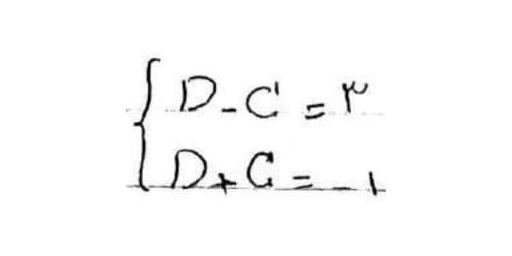 D - C = ۳
D + C = -۱